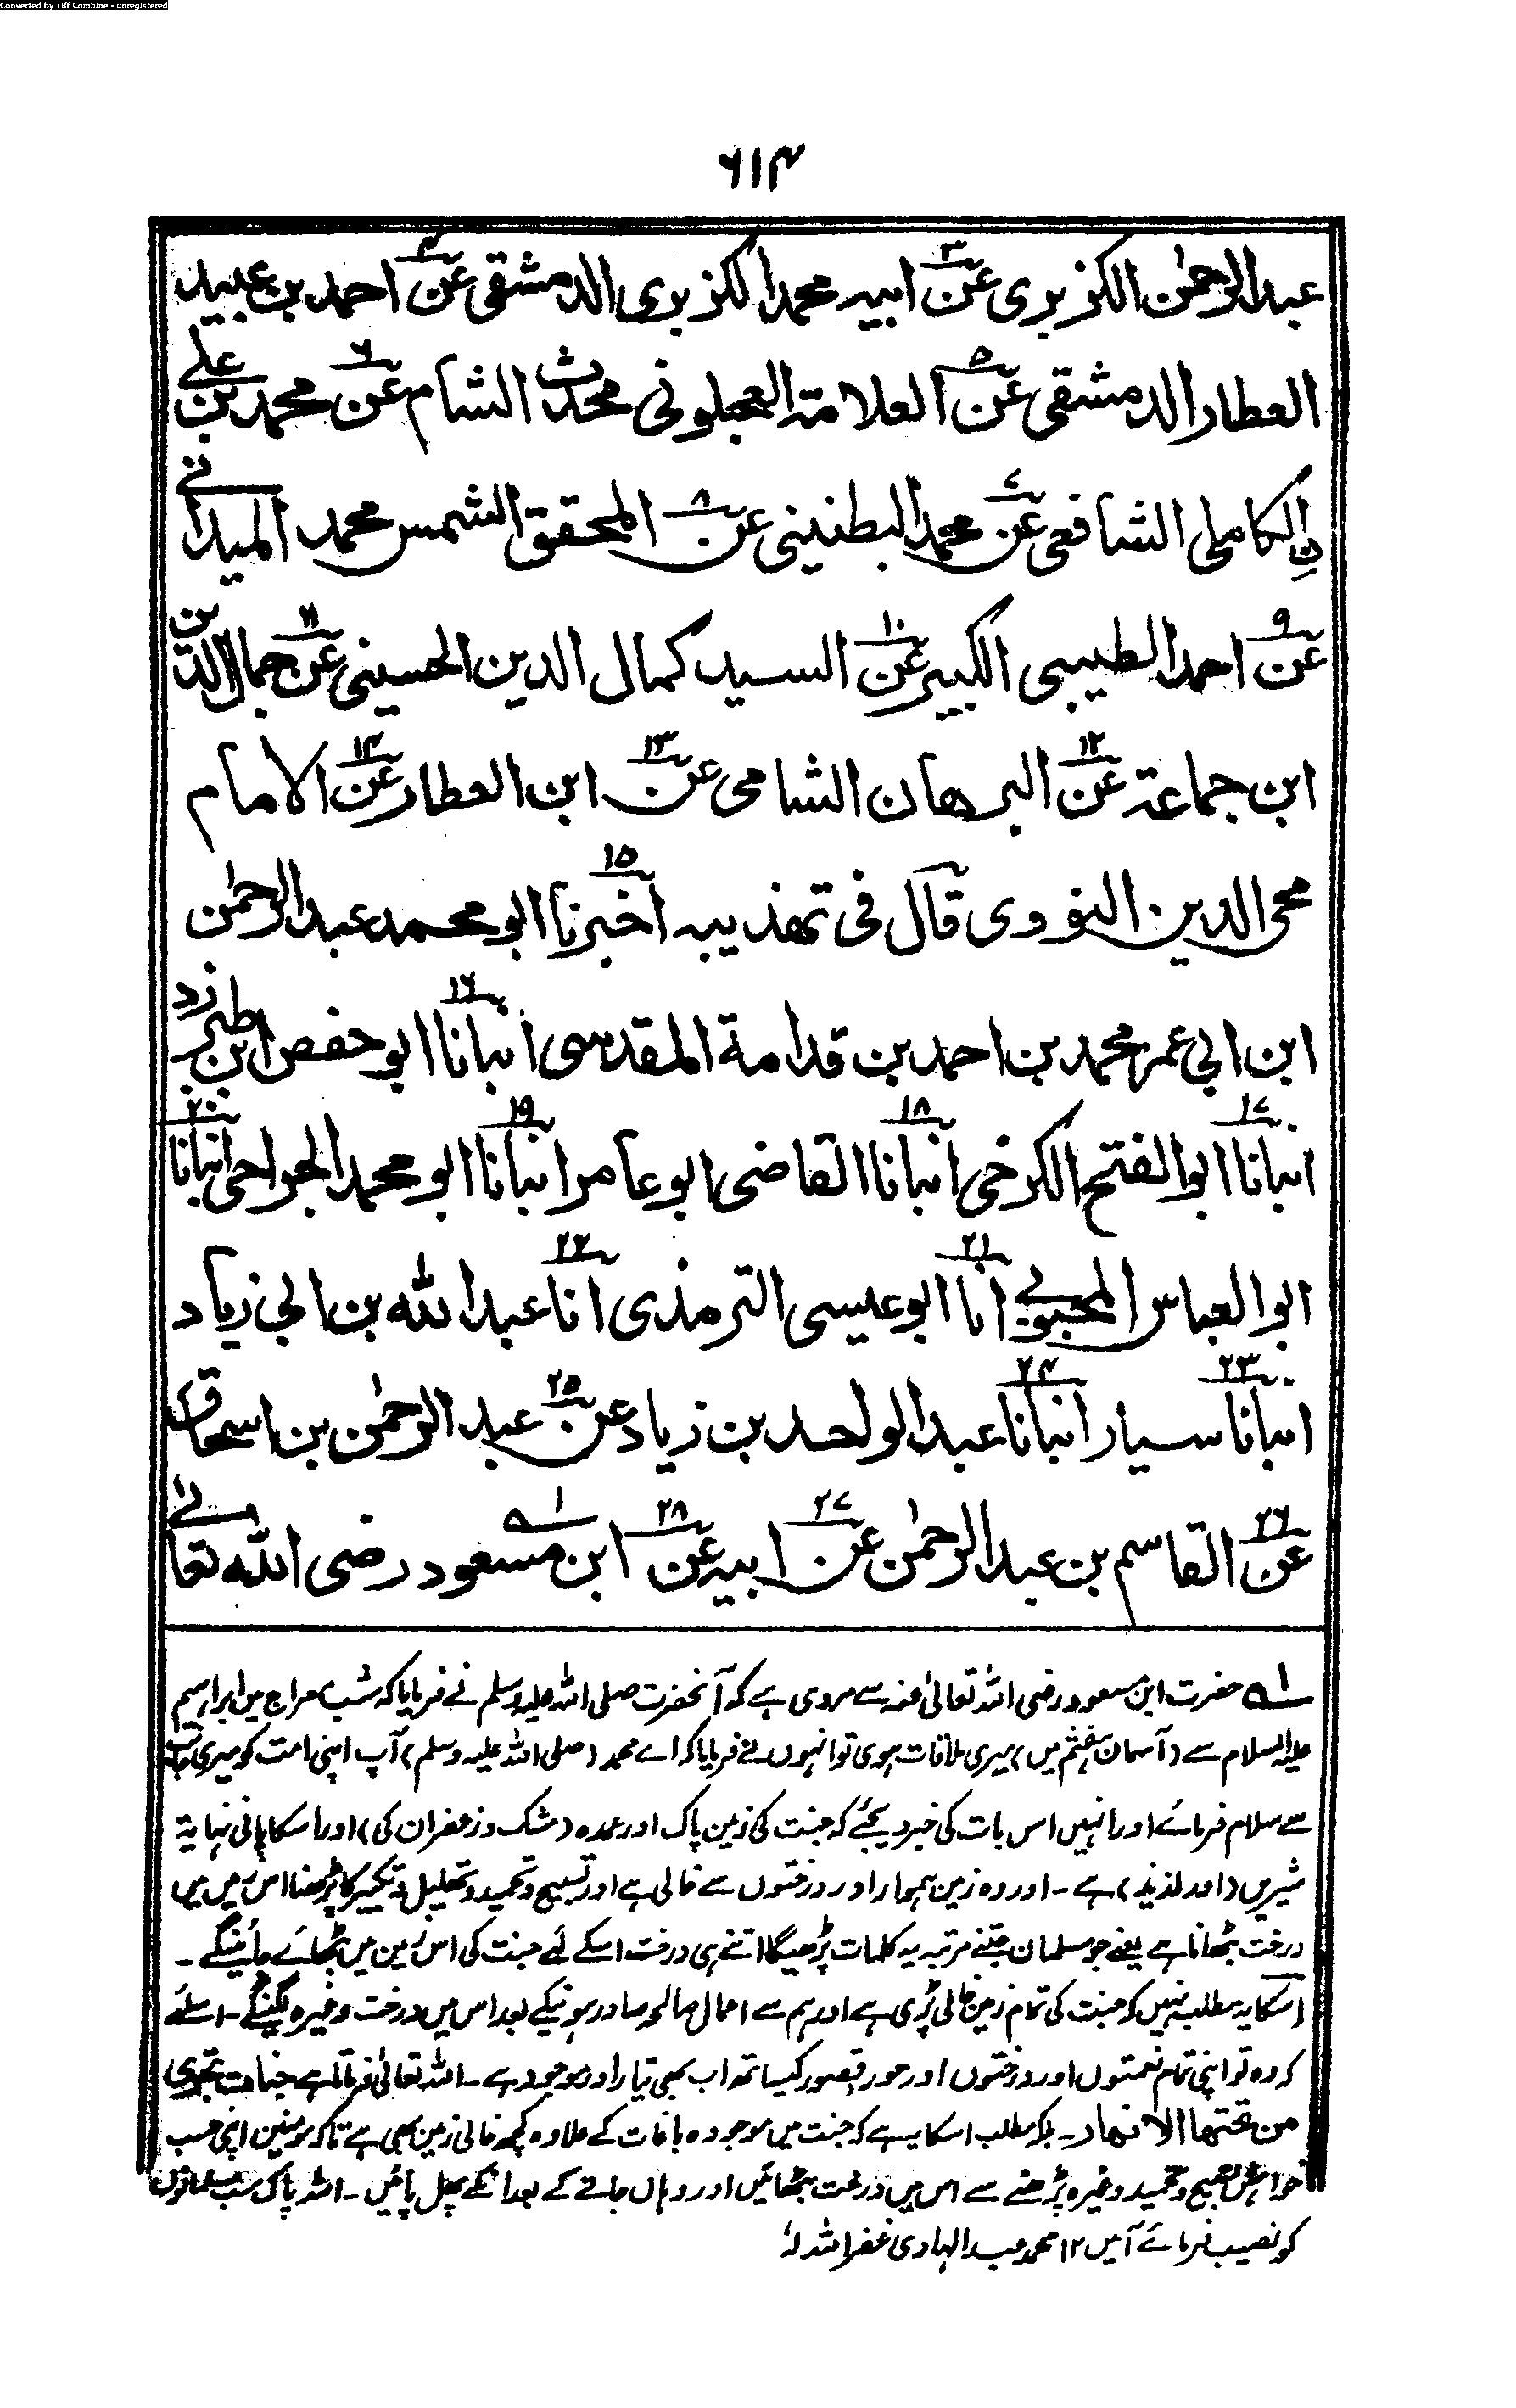 Converted by Tiff Combine - unregistered
٦١٣
عبدالرحمٰن الكزبرى عن٣ ابيه محمد الكزبرى الدمشقى عن٤ احمد بن عبيد
العطار الدمشقى عن٥ العلامة العجلونى محدث الشام عن٦ محمد بن على
نِ الكاملى الشافعى عن٧ محمد البطنينى عن٨ المحقق الشمس محمد الميدانى
عن٩ احمد الطيبى الكبير عن١٠ السيد كمال الدين الحسينى عن١١ جمال الدين
ابن جماعة عن١٢ البرهان الشامى عن١٣ ابن العطار عن١٤ الامام
محى الدين النووى قال فى تهذيبه اخبرنا١٥ ابو محمد عبدالرحمٰن
ابن ابى عمر محمد بن احمد بن قدامة المقدسى انبانا١٦ ابو حفص ابن طبرزد
انبانا١٧ ابوالفتح الكرخى انبانا١٨ القاضى ابو عامر انبانا١٩ ابو محمد الجراحى انبانا٢٠
ابوالعباس المحبوبى انا٢١ ابو عيسى الترمذى انا٢٢ عبدالله بن ابى زياد
انبانا٢٣ سيار انبانا٢٤ عبدالواحد بن زياد عن٢٥ عبدالرحمٰن بن اسحاق
عن٢٦ القاسم بن عبدالرحمٰن عن٢٧ ابيه عن٢٨ ابن مسعود١ رضى الله تعالى
١ حضرت ابن مسعود رضی اللہ تعالیٰ عنہ سے مروی ہے کہ آنحضرت صلی اللہ علیہ وسلم نے فرمایا کہ شب معراج میں ابراہیم
علیہ السلام سے (آسمان ہفتم میں) میری ملاقات ہوی تو انہوں نے فرمایا کہ اے محمد (صلی اللہ علیہ وسلم) آپ اپنی امت کو میری جانب
سے سلام فرمائے اور انہیں اس بات کی خبر دیجئے کہ جنت کی زمین پاک اور عمدہ (مشک و زعفران کی) اور اسکا پانی نہایۃ
شیریں (اور لذیذ) ہے ۔ اور وہ زمین ہموار اور درختوں سے خالی ہے اور تسبیح و تحمید و تھلیل و تکبیر کا پڑھنا اس میں
درخت بٹھانا ہے یعنے جو مسلمان جتنے مرتبہ یہ کلمات پڑھیگا اتنے ہی درخت اسکے لئے جنت کی اس زمین میں بٹھائے جائینگے ۔
اسکا یہ مطلب نہیں کہ جنت کی تمام زمین خالی پڑی ہے اور ہم سے اعمال صالحہ صادر ہونیکے بعد اس میں درخت وغیرہ لگینگے ۔ اسلئے
کہ وہ تو اپنی تمام نعمتوں اور درختوں اور حور و قصور کیساتھ اب بھی تیار اور موجود ہے ۔ اللہ تعالیٰ فرماتا ہے جنات تجری
من تحتها الانهار ۔ بلکہ مطلب اسکا یہ ہے کہ جنت میں موجودہ باغات کے علاوہ کچھ خالی زمین بھی ہے تاکہ مومنین اپنی حسب
خواہش تسبیح و تحمید وغیرہ پڑھنے سے اس میں درخت بٹھائیں اور وہاں جانے کے بعد انکے پھل پائیں ۔ اللہ پاک سب مسلمانوں
کو نصیب فرمائے آمین ١٢ محمد عبدالہادی غفر اللہ لہٗ